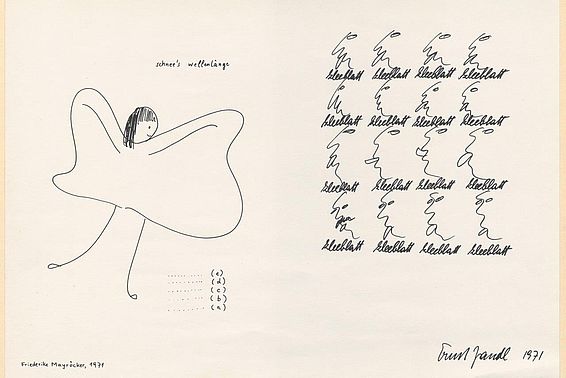 schnee's wellenlänge
(e)
(d)
(c)
(b)
(a)
Friederike Mayröcker, 1971
kleeblatt kleeblatt kleeblatt kleeblatt
kleeblatt kleeblatt kleeblatt kleeblatt
kleeblatt kleeblatt kleeblatt kleeblatt
kleeblatt kleeblatt kleeblatt kleeblatt
Ernst Jandl 1971